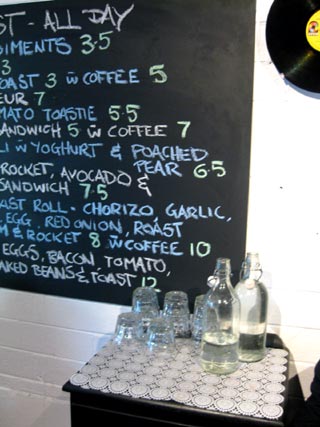 ST - ALL DAY
DIMENTS 3.5
3
OAST 3 w̄ COFFEE 5
EUR 7
MATO TOASTIE 5.5
SANDWICH 5 w̄ COFFEE 7
LI w̄ YOGHURT & POACHED
PEAR 6.5
ROCKET, AVOCADO &
SANDWICH 7.5
AST ROLL - CHORIZO, GARLIC,
EGG, RED ONION, ROAST
M & ROCKET 8 w̄ COFFEE 10
EGGS, BACON, TOMATO,
AKED BEANS & TOAST 12